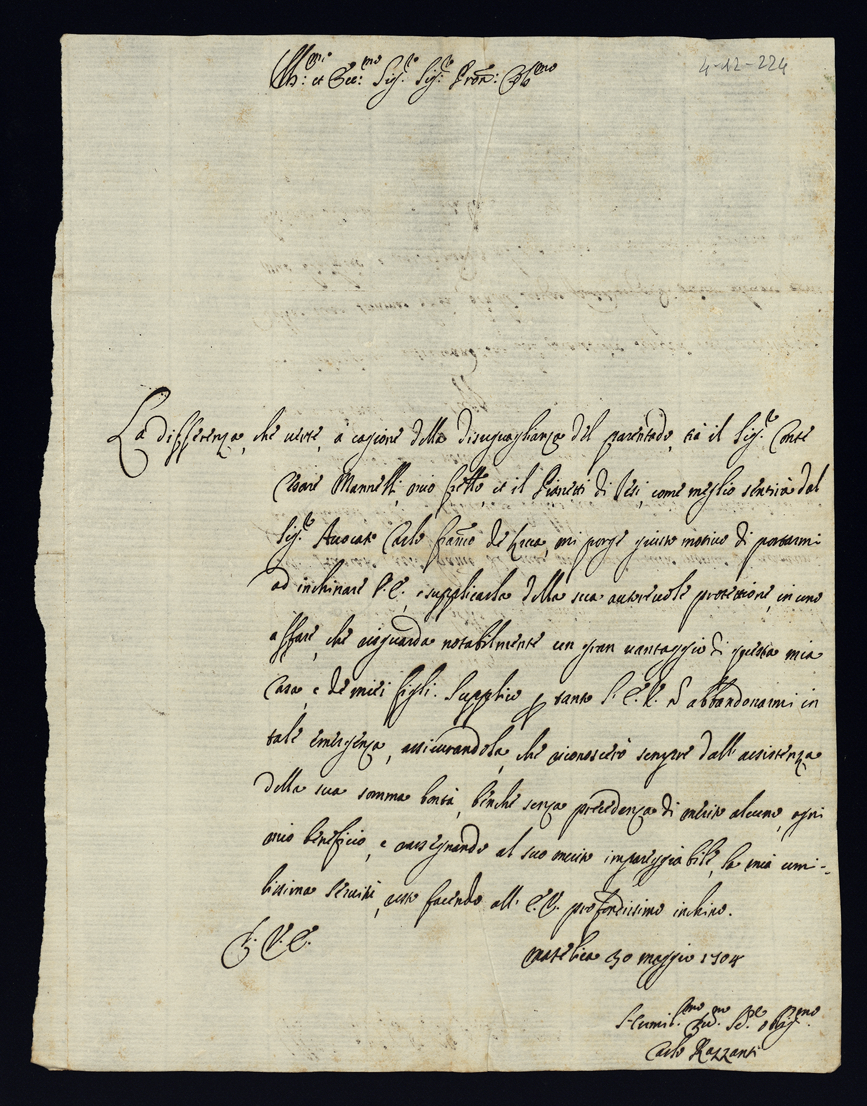 Ill:mi et Ecc:mo Sig.re Sig.re Pron: Ob:mo
4-12-224
La differenza, che uerte, a cagione della disuguaglianza del parentado, trà il Sig.re Conte
Cesare Mannelli mio frello et il Pianetti di Iesi, come meglio sentirà dal
Sig.re Auocato Carlo franco de Luca, mi porge giusto motiuo di portarmi
ad inchinare V. E., e supplicarla della sua autoreuole protettione, in uno
affare, che risguarda notabilmente un gran uantaggio di questa mia
Casa, e de miei figli. Supplico per tanto l'E. V. à non abbandonarmi in
tale emergenza, assicurandola, che riconoscerò sempre dall'assistenza
della sua somma bontà, benche senza precedenza di merito alcuno, ogni
mio beneficio, e rassegnando al suo merito impareggiabile, la mia umi-
lissima seruitù, resto facendo all' E. V. profondissimo inchino.
D. V. E.
Matelica 30 maggio 1704
Humil.mo Deu.mo Se.re oblig.mo
Carlo Razzanti